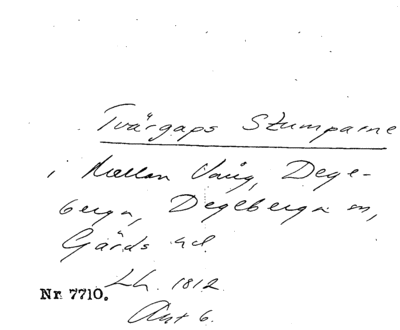 Tvärgaps Stumparne
i Mellan Vång, Dege-
berga, Degeberga sn,
Gärds hd.
Lh. 1812
Nr 7710.
Akt 6.